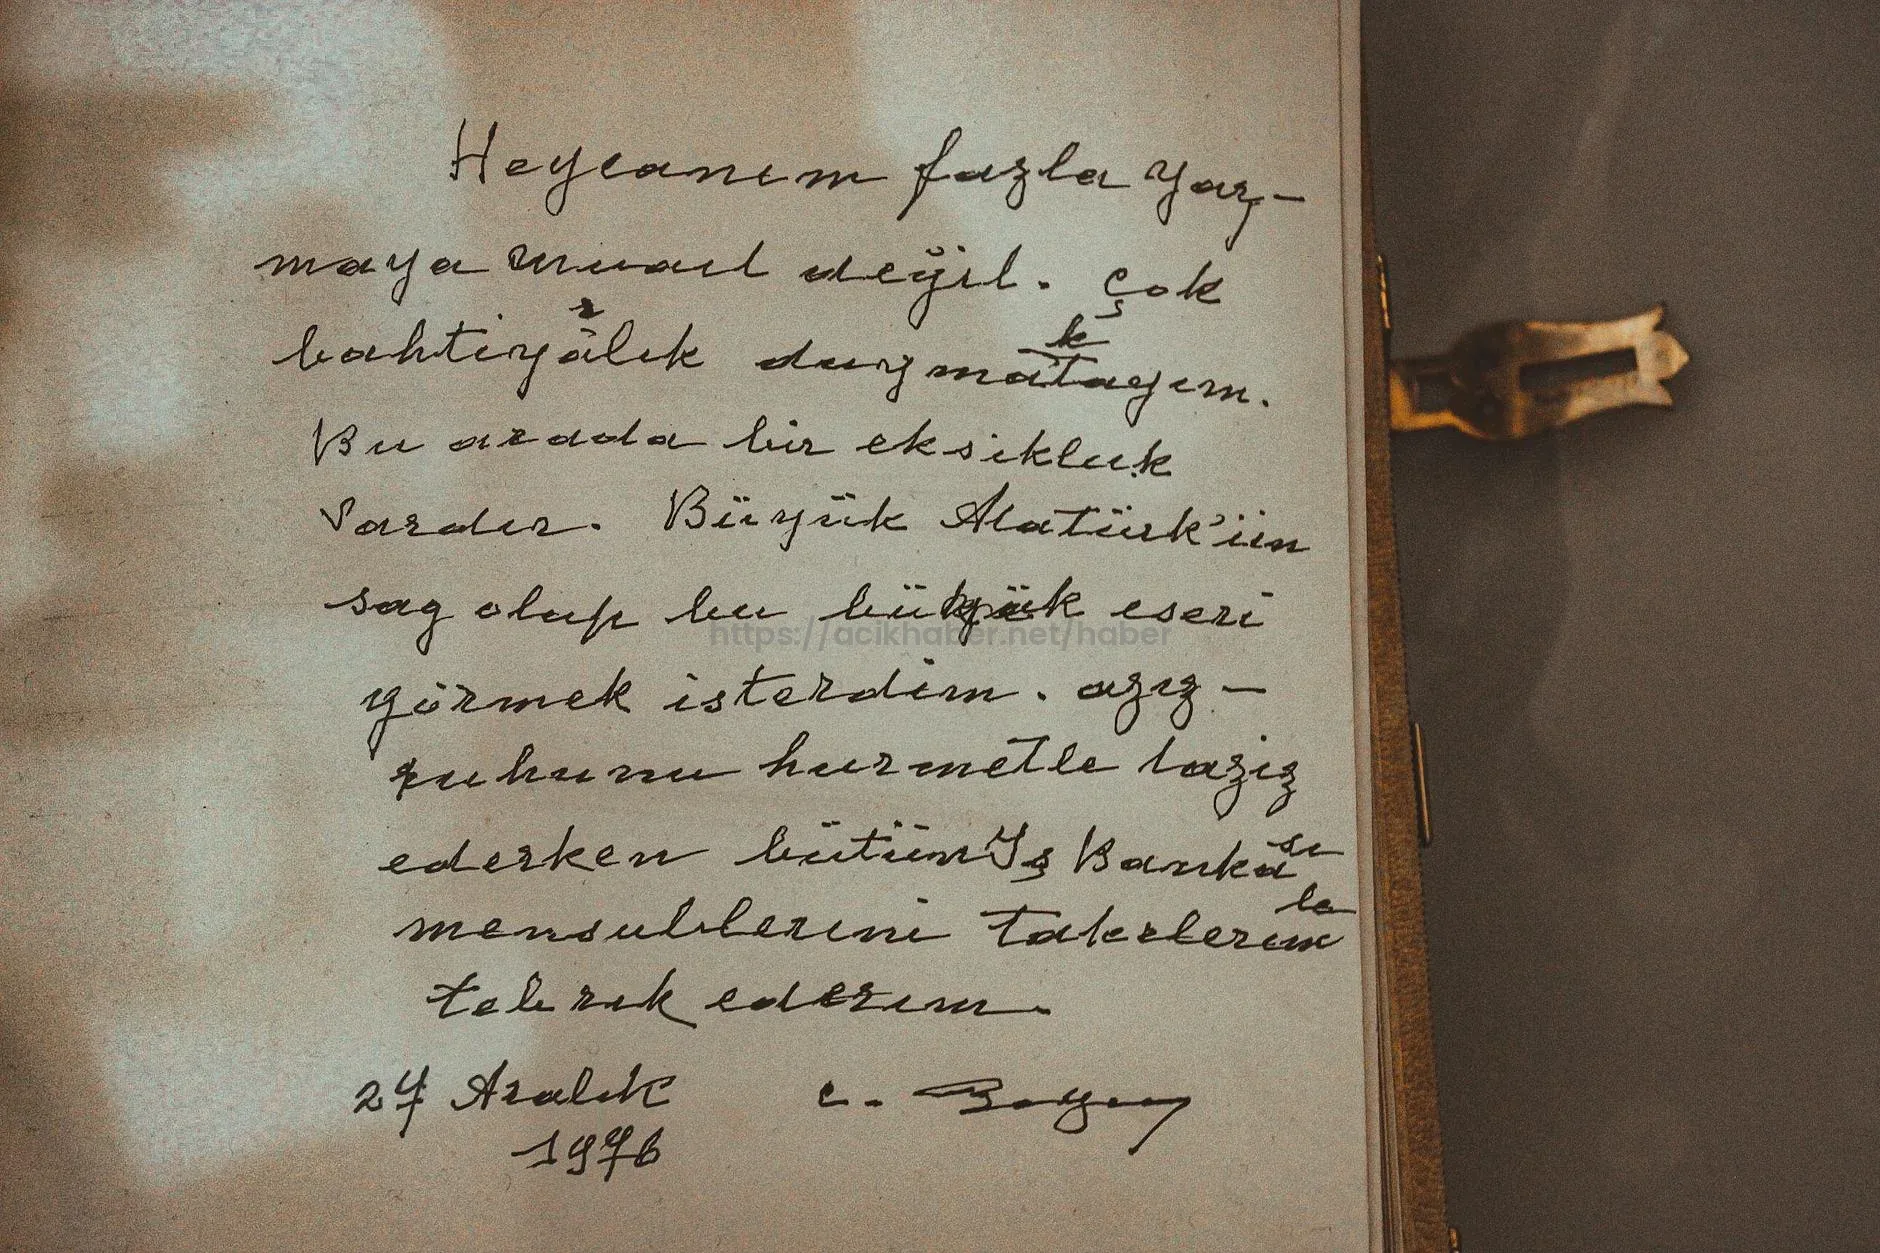 Heycanım fazla yaz-
maya müsait deyıl. Çok
bahtiyarlık duymaktayım.
Bu arada bir eksikluk
vardır. Büyük Atatürk'ün
sag olup bu büyük eseri
görmek isterdim. azız-
ruhunu hurmetle taziz
ederken bütün Iş Bankası
mensublerını takdırlerimle
tebrık ederım.
27 Aralık c.
1976
https://acikhaber.net/haber